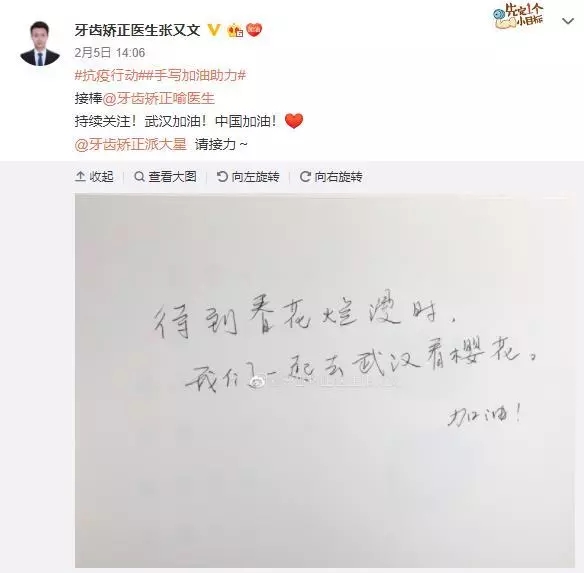 牙齿矫正医生张又文
先定1个
小目标
2月5日 14:06
#抗疫行动##手写加油助力#
接棒@牙齿矫正喻医生
持续关注！武汉加油！中国加油！
@牙齿矫正派大星 请接力～
收起 查看大图 向左旋转 向右旋转
待到春花烂漫时，
我们一起去武汉看樱花。
加油！